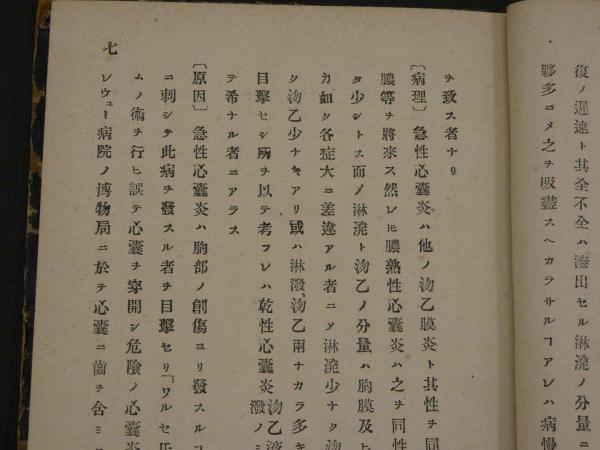 復ノ遲速ト其全不全ハ滲出セル淋潑ノ分量ニ
夥多ニメ之ヲ吸盡スヘカラサルヿアレハ病慢
ヲ致ス者ナリ
〔病理〕急性心囊炎ハ他ノ沕乙膜炎ト其性ヲ同
膿等ヲ將來ス然レ𪜈膿熟性心囊炎ハ之ヲ同性
タ少シトス而メ淋潑ト沕乙ノ分量ハ胸膜及ヒ
カ如ク各症大ニ差違アル者ニメ淋潑少ナク沕
ク沕乙少ナキアリ或ハ淋潑沕乙兩ナカラ多キ
目擊セシ所ヲ以テ考フレハ乾性心囊炎沕乙液
潑ノミ
テ希ナル者ニアラス
〔原因〕急性心囊炎ハ胸部ノ創傷ヨリ發スルコ
ニ刺シテ此病ヲ發スル者ヲ目擊セリ「ワルセ氏
ムノ術ヲ行ヒ誤テ心囊ヲ穿開シ危險ノ心囊炎
レウュー病院ノ博物局ニ於テ心囊ニ齒ヲ含ミ
七